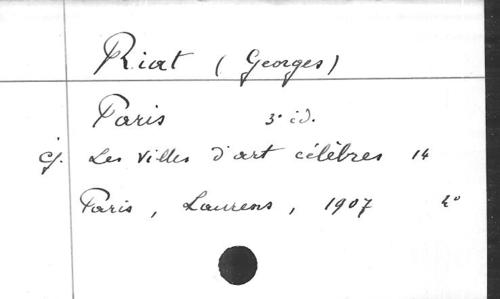 Riat (Georges)
Paris 3e éd.
cf. Les villes d'art célèbres 14
Paris, Laurens, 1907 4°